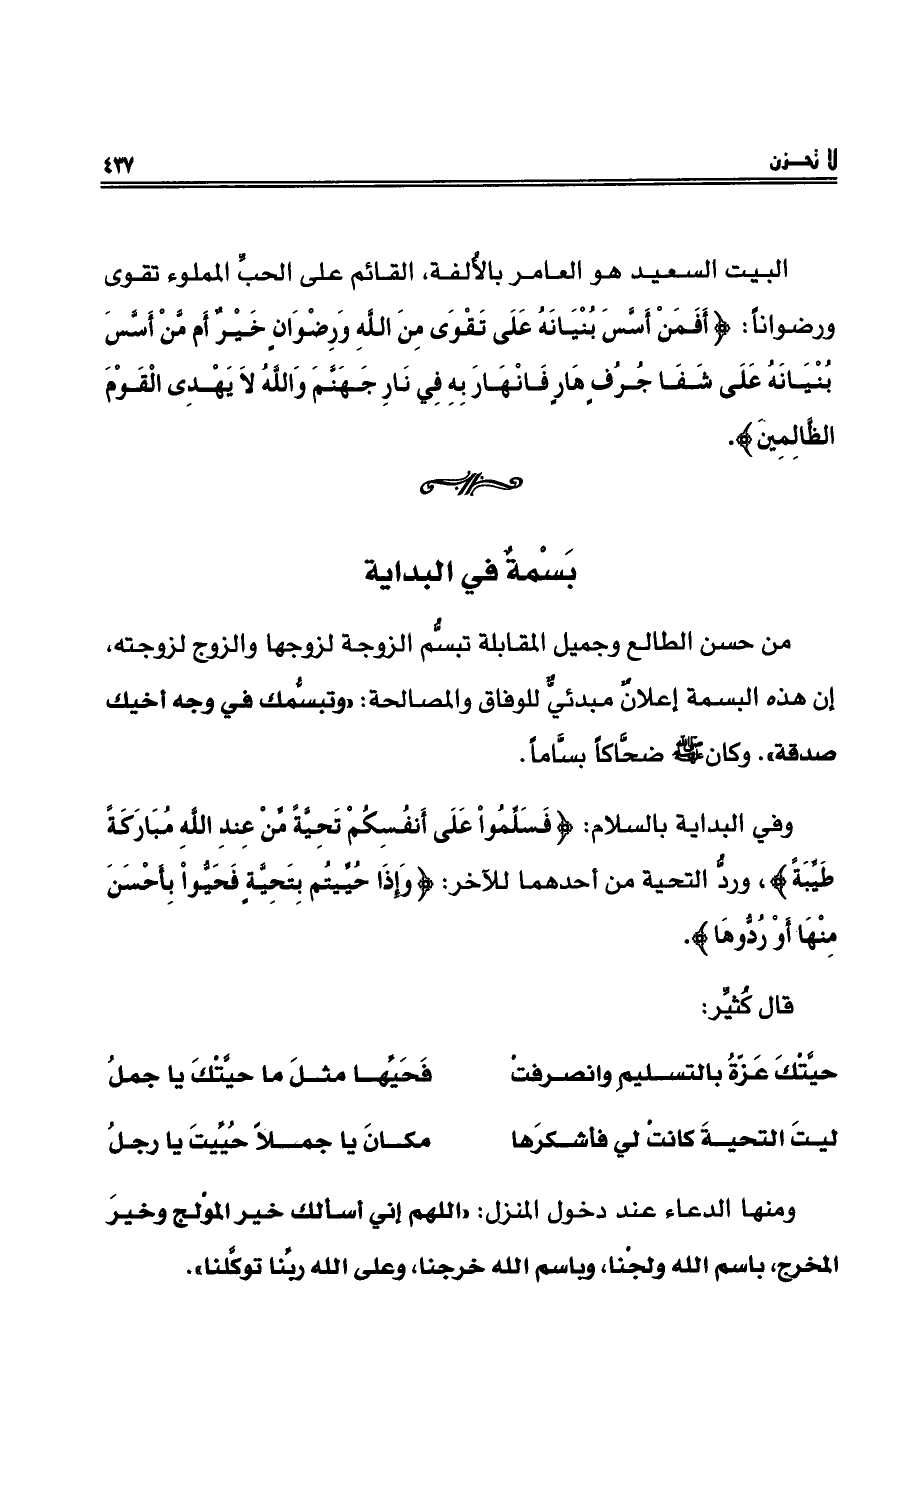 لا تحـزن
٤٣٧
البيت السعيد هو العامر بالأُلفة، القائم على الحبِّ المملوء تقوى
ورضواناً: ﴿أَفَمَنْ أَسَّسَ بُنْيَانَهُ عَلَى تَقْوَى مِنَ اللَّهِ وَرِضْوَانٍ خَيْرٌ أَم مَّنْ أَسَّسَ
بُنْيَانَهُ عَلَى شَفَا جُرُفٍ هَارٍ فَانْهَارَ بِهِ فِي نَارِ جَهَنَّمَ وَاللَّهُ لاَ يَهْدِى الْقَوْمَ
الظَّالِمِينَ﴾.
بَسْمةٌ في البداية
من حسن الطالع وجميل المقابلة تبسُّم الزوجة لزوجها والزوج لزوجته،
إن هذه البسمة إعلانٌ مبدئيٌّ للوفاق والمصالحة: «وتبسُّمك في وجه أخيك
صدقة». وكان ﷺ ضحَّاكاً بسَّاماً.
وفي البداية بالسلام: ﴿فَسَلِّمُواْ عَلَى أَنفُسِكُمْ تَحِيَّةً مِّنْ عِندِ اللَّهِ مُبَارَكَةً
طَيِّبَةً﴾، وردُّ التحية من أحدهما للآخر: ﴿وَإِذَا حُيِّيتُم بِتَحِيَّةٍ فَحَيُّواْ بِأَحْسَنَ
مِنْهَا أَوْ رُدُّوهَا﴾.
قال كُثيِّر:
حيَّتْكَ عَزّةُ بالتسليمِ وانصرفتْ فَحَيِّها مثلَ ما حيَّتْكَ يا جملُ
ليتَ التحيةَ كانتْ لي فأشكرَها مكانَ يا جملاً حُيِّيتَ يا رجلُ
ومنها الدعاء عند دخول المنزل: «اللهم إني أسألك خير المؤلج وخيرَ
المخرج، باسم الله ولجْنا، وباسم الله خرجنا، وعلى الله ربِّنا توكَّلنا».